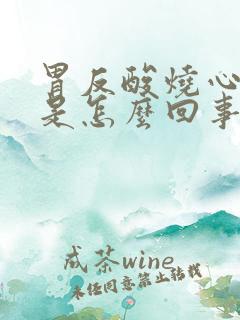 胃反酸燒心
是怎麼回事
成茶wine
未经同意禁止转载